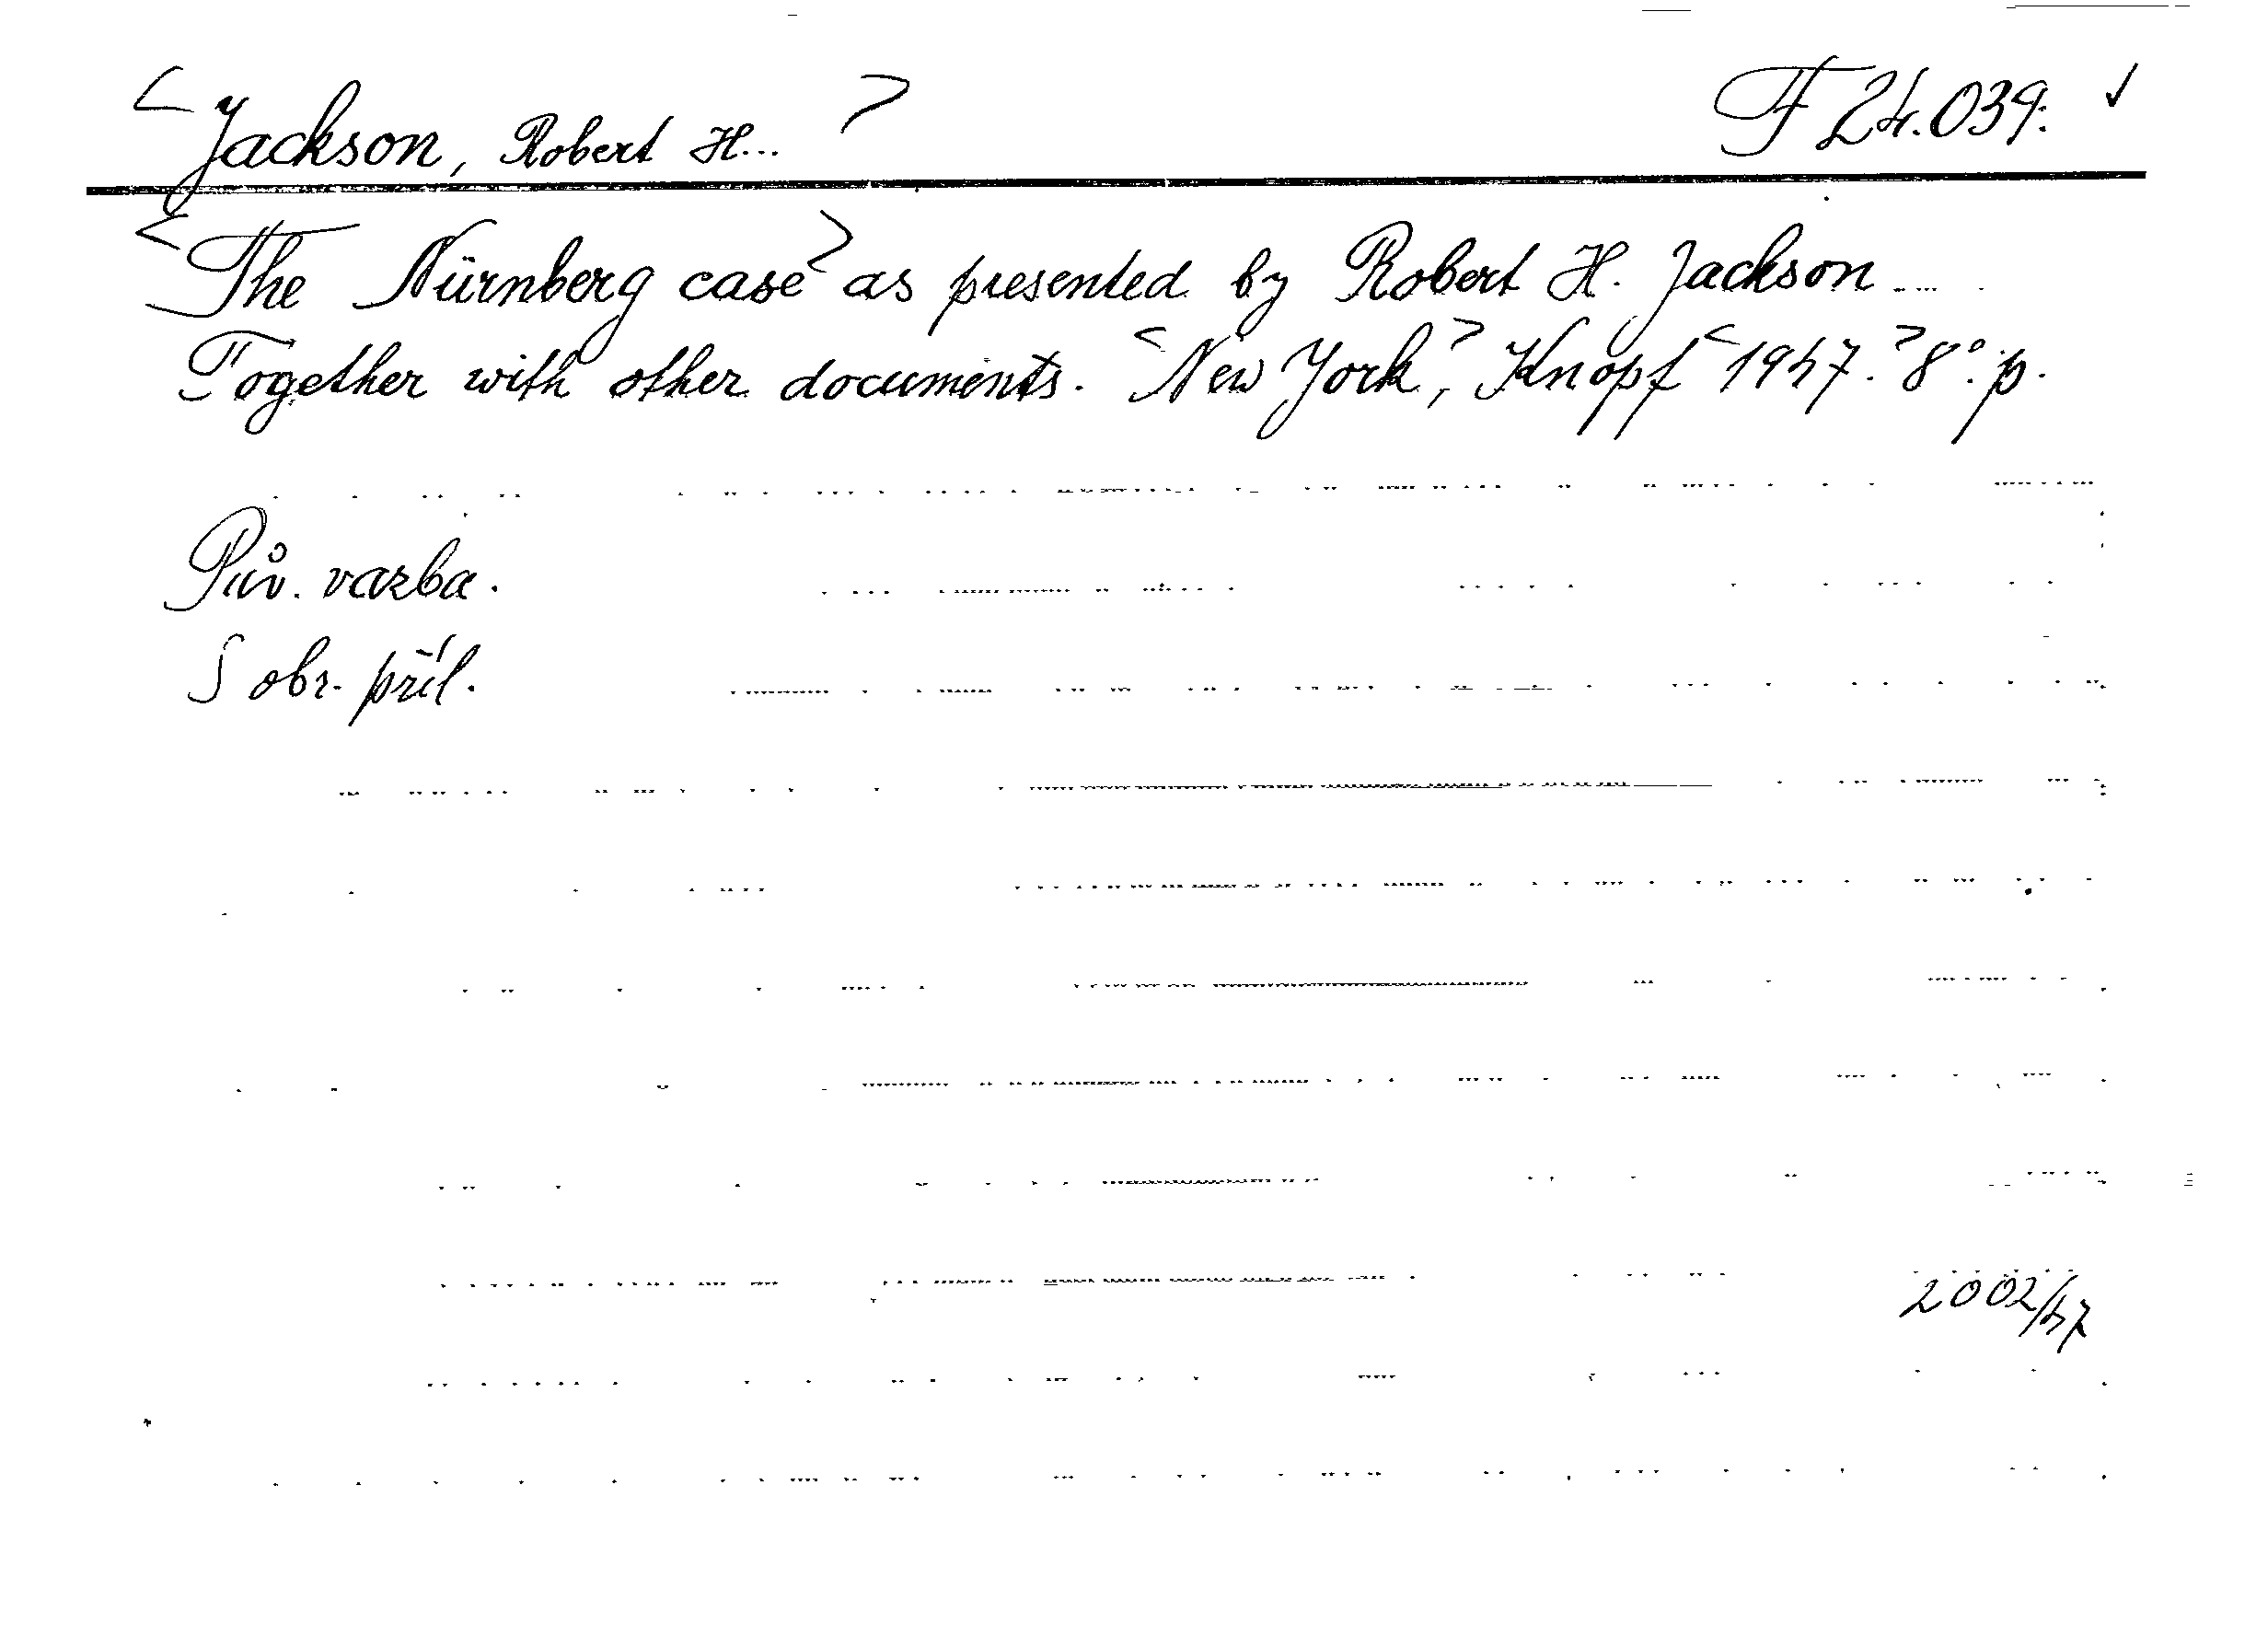 <Jackson, Robert H...> F 24.039. ✓
<The Nürnberg case> as presented by Robert H. Jackson...
Together with other documents. <New York,> Knopf <1947.> 8°. p.
Pův. vazba.
S obr. příl.
2002/47